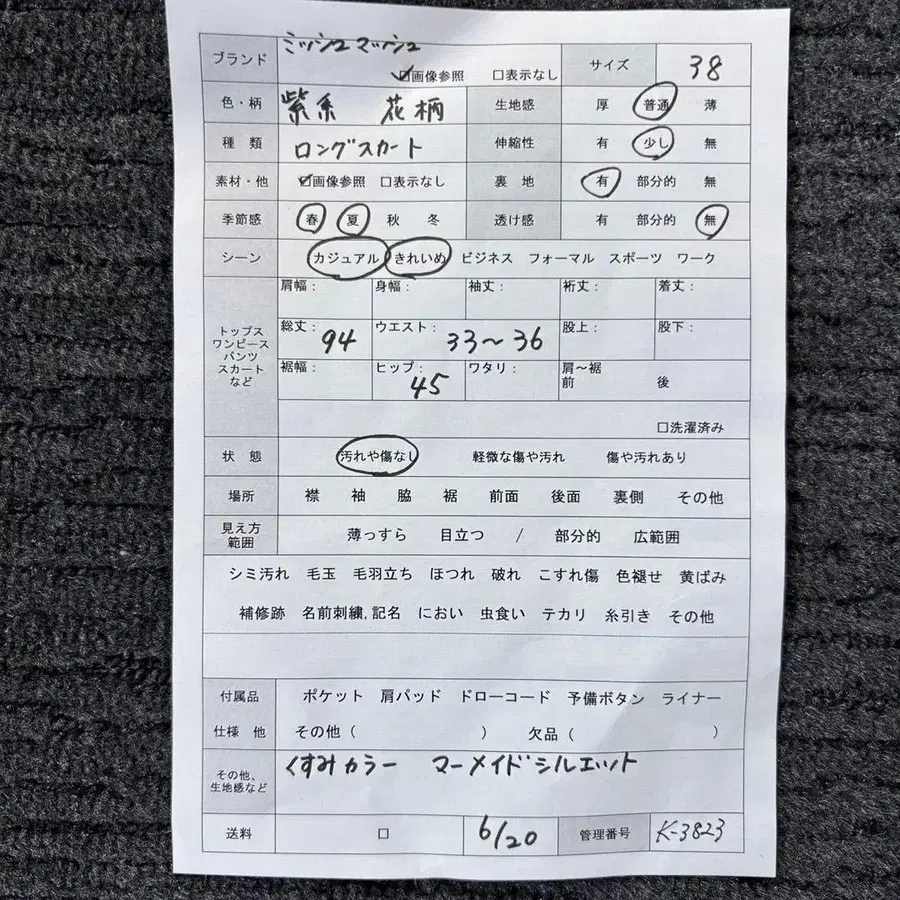 ブランド ミッシュマッシュ ☑画像参照 □表示なし サイズ 38
色・柄 紫系 花柄 生地感 厚 普通 薄
種類 ロングスカート 伸縮性 有 少し 無
素材・他 ☑画像参照 □表示なし 裏地 有 部分的 無
季節感 春 夏 秋 冬 透け感 有 部分的 無
シーン カジュアル きれいめ ビジネス フォーマル スポーツ ワーク
トップス
ワンピース
パンツ
スカート
など
肩幅： 身幅： 袖丈： 裄丈： 着丈：
総丈： 94 ウエスト： 33〜36 股上： 股下：
裾幅： ヒップ： 45 ワタリ： 肩〜裾
前 後
□洗濯済み
状態 汚れや傷なし 軽微な傷や汚れ 傷や汚れあり
場所 襟 袖 脇 裾 前面 後面 裏側 その他
見え方
範囲
薄っすら 目立つ / 部分的 広範囲
シミ汚れ 毛玉 毛羽立ち ほつれ 破れ こすれ傷 色褪せ 黄ばみ
補修跡 名前刺繍,記名 におい 虫食い テカリ 糸引き その他
付属品 ポケット 肩パッド ドローコード 予備ボタン ライナー
仕様 他 その他（ ） 欠品（ ）
その他、
生地感など
くすみカラー マーメイドシルエット
送料 □ 6/20 管理番号 K-3823